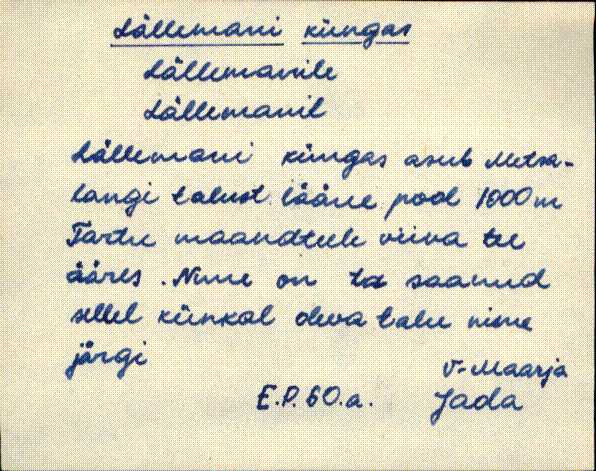 Lällemani küngas
Lällemanile
Lällemanil
Lällemani küngas asub Metsa-
langi talust lääne pool 1000 m
Tartu maandteele viiva tee
ääres. Nime on ta saanud
sellel künkal oleva talu nime
järgi
V-Maarja
E.P. 60.a. Jada